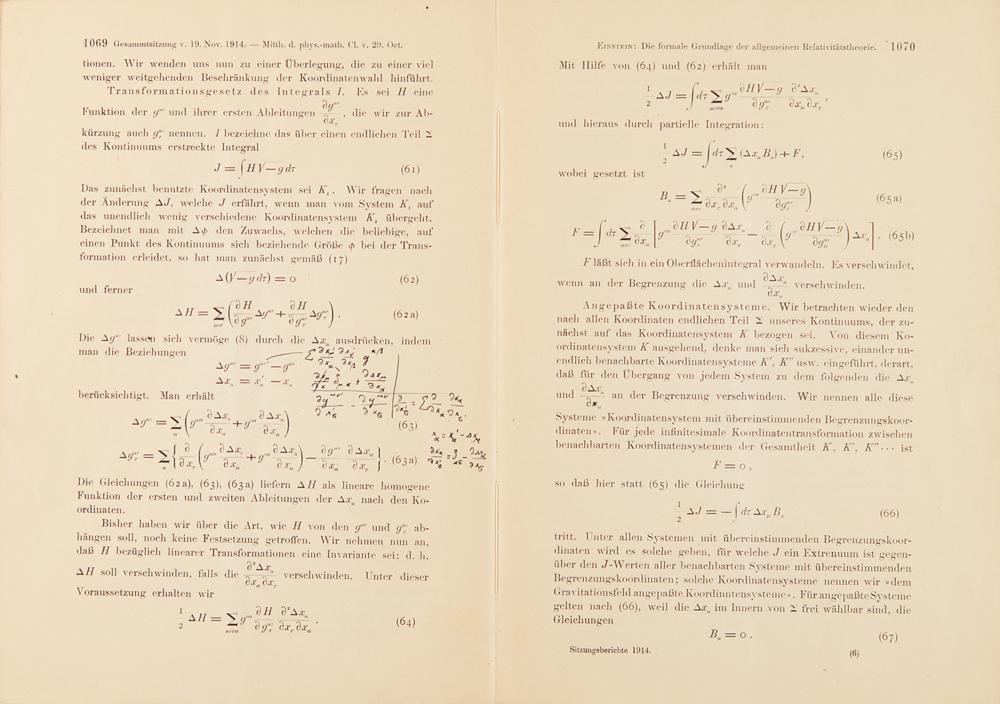 1069 Gesammtsitzung v. 19. Nov. 1914. — Mitth. d. phys.-math. Cl. v. 29. Oct.
tionen. Wir wenden uns nun zu einer Überlegung, die zu einer viel
weniger weitgehenden Beschränkung der Koordinatenwahl hinführt.
Transformationsgesetz des Integrals J. Es sei H eine
Funktion der g^{μν} und ihrer ersten Ableitungen ∂g^{μν}/∂x_σ, die wir zur Ab-
kürzung auch g_σ^{μν} nennen. J bezeichne das über einen endlichen Teil Σ
des Kontinuums erstreckte Integral
J = ∫ H √−g dτ (61)
Das zunächst benutzte Koordinatensystem sei K₁. Wir fragen nach
der Änderung ΔJ, welche J erfährt, wenn man vom System K₁ auf
das unendlich wenig verschiedene Koordinatensystem K₂ übergeht.
Bezeichnet man mit Δφ den Zuwachs, welchen die beliebige, auf
einen Punkt des Kontinuums sich beziehende Größe φ bei der Trans-
formation erleidet, so hat man zunächst gemäß (17)
Δ(√−g dτ) = 0 (62)
und ferner
ΔH = Σ_{μνσ} (∂H/∂g^{μν} Δg^{μν} + ∂H/∂g_σ^{μν} Δg_σ^{μν}). (62a)
Die Δg^{μν} lassen sich vermöge (8) durch die Δx_μ ausdrücken, indem
man die Beziehungen
Δg^{μν} = g^{μν′} − g^{μν}
Δx_μ = x_μ′ − x_μ
berücksichtigt. Man erhält
Δg^{μν} = Σ_α (g^{μα} ∂Δx_ν/∂x_α + g^{να} ∂Δx_μ/∂x_α) (63)
Δg_σ^{μν} = Σ_α {∂/∂x_σ (g^{μα} ∂Δx_ν/∂x_α + g^{να} ∂Δx_μ/∂x_α) − ∂g^{μν}/∂x_α ∂Δx_α/∂x_σ}. (63a)
Die Gleichungen (62a), (63), (63a) liefern ΔH als lineare homogene
Funktion der ersten und zweiten Ableitungen der Δx_μ nach den Ko-
ordinaten.
Bisher haben wir über die Art, wie H von den g^{μν} und g_σ^{μν} ab-
hängen soll, noch keine Festsetzung getroffen. Wir nehmen nun an,
daß H bezüglich linearer Transformationen eine Invariante sei; d. h.
ΔH soll verschwinden, falls die ∂²Δx_μ/∂x_α∂x_σ verschwinden. Unter dieser
Voraussetzung erhalten wir
1/2 ΔH = Σ_{μνσα} g^{να} ∂H/∂g_σ^{μν} ∂²Δx_μ/∂x_σ∂x_α. (64)
Einstein: Die formale Grundlage der allgemeinen Relativitätstheorie. 1070
Mit Hilfe von (64) und (62) erhält man
1/2 ΔJ = ∫ dτ Σ_{μνσα} g^{να} ∂H√−g/∂g_σ^{μν} ∂²Δx_μ/∂x_σ∂x_α,
und hieraus durch partielle Integration:
1/2 ΔJ = ∫ dτ Σ_μ (Δx_μ B_μ) + F, (65)
wobei gesetzt ist
B_μ = Σ_{ασν} ∂²/∂x_σ∂x_α (g^{να} ∂H√−g/∂g_σ^{μν}) (65a)
F = ∫ dτ Σ_{μνσα} ∂/∂x_α [g^{να} ∂H√−g/∂g_σ^{μν} ∂Δx_μ/∂x_σ − ∂/∂x_σ (g^{να} ∂H√−g/∂g_σ^{μν}) Δx_μ]. (65b)
F läßt sich in ein Oberflächenintegral verwandeln. Es verschwindet,
wenn an der Begrenzung die Δx_μ und ∂Δx_μ/∂x_σ verschwinden.
Angepaßte Koordinatensysteme. Wir betrachten wieder den
nach allen Koordinaten endlichen Teil Σ unseres Kontinuums, der zu-
nächst auf das Koordinatensystem K bezogen sei. Von diesem Ko-
ordinatensystem K ausgehend, denke man sich sukzessive, einander un-
endlich benachbarte Koordinatensysteme K′, K″ usw. eingeführt, derart,
daß für den Übergang von jedem System zu dem folgenden die Δx_μ
und ∂Δx_μ/∂x_α an der Begrenzung verschwinden. Wir nennen alle diese
Systeme »Koordinatensystem mit übereinstimmenden Begrenzungskoor-
dinaten«. Für jede infinitesimale Koordinatentransformation zwischen
benachbarten Koordinatensystemen der Gesamtheit K, K′, K″··· ist
F = 0,
so daß hier statt (65) die Gleichung
1/2 ΔJ = − ∫ dτ Δx_μ B_μ (66)
tritt. Unter allen Systemen mit übereinstimmenden Begrenzungskoor-
dinaten wird es solche geben, für welche J ein Extremum ist gegen-
über den J-Werten aller benachbarten Systeme mit übereinstimmenden
Begrenzungskoordinaten; solche Koordinatensysteme nennen wir »dem
Gravitationsfeld angepaßte Koordinatensysteme«. Für angepaßte Systeme
gelten nach (66), weil die Δx_μ im Innern von Σ frei wählbar sind, die
Gleichungen
B_μ = 0. (67)
Sitzungsberichte 1914. (6)